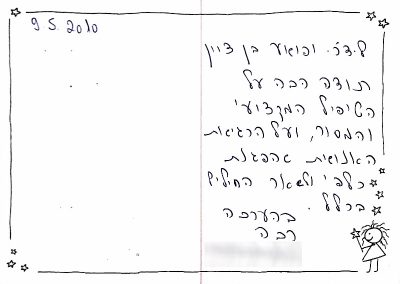 9.5.2010
לד״ר. ופואע בן ציין
תודה רבה על
הטיפול המקצועי
והמסור, ועל הרגישות
האנושית שהפגנת
כלפי ולשאר החולים
בכלל.
בהערכה
רבה